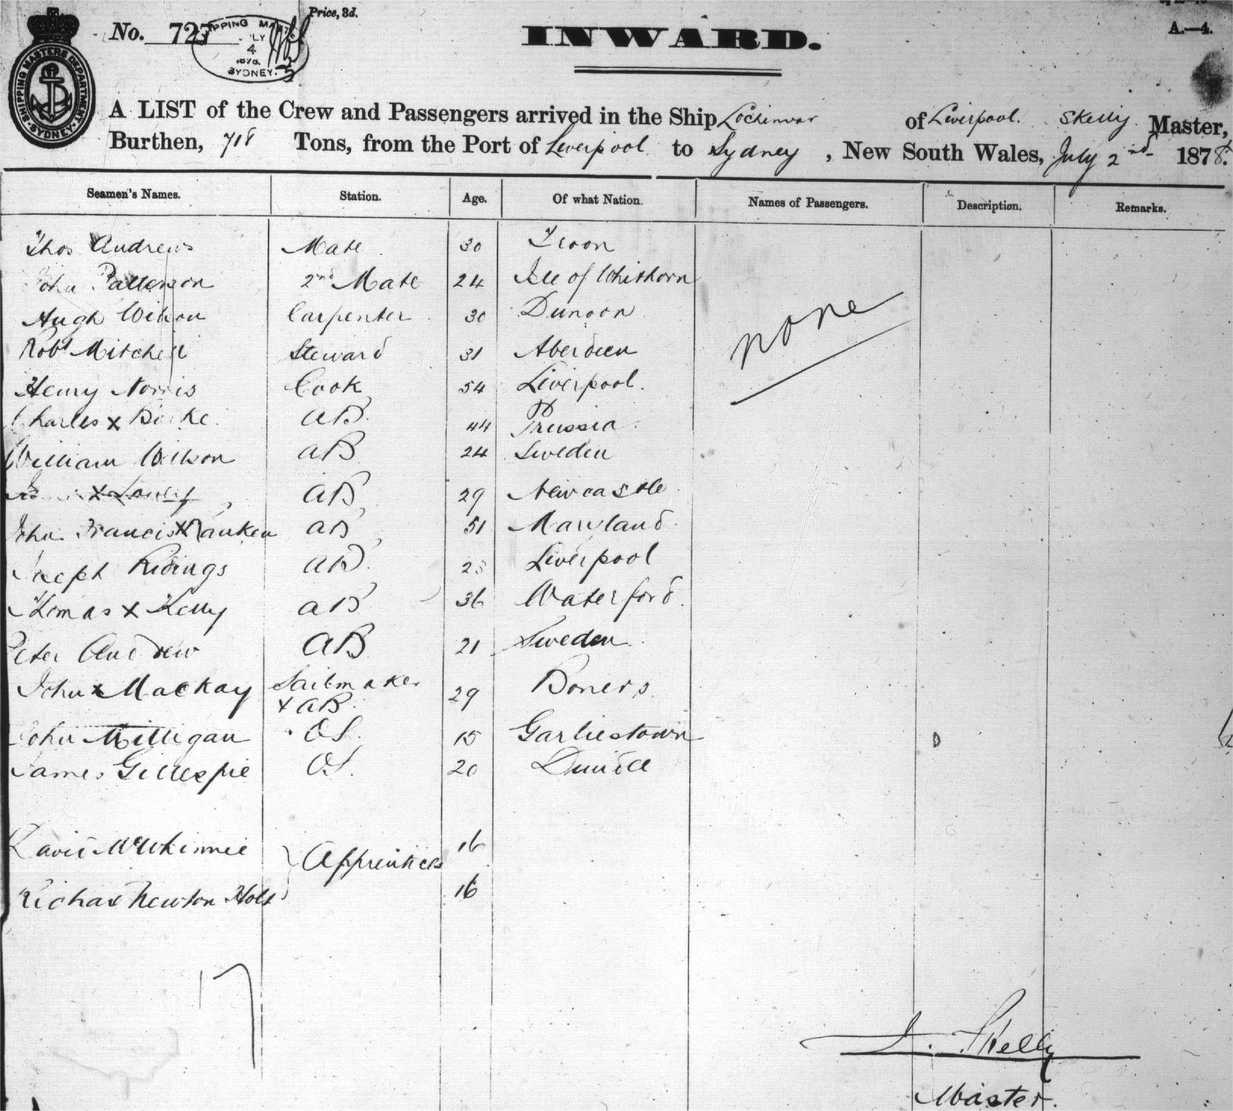 Price, 3d.
A.—4.
No. 727
SHIPPING MASTERS DEPARTMENT SYDNEY
SHIPPING MAST
LY
4
SYDNEY.
INWARD.
A LIST of the Crew and Passengers arrived in the Ship Lochinvar of Liverpool. Skelly Master,
Burthen, 718 Tons, from the Port of Liverpool to Sydney, New South Wales, July 2nd 1878.
Seamen's Names. Station. Age. Of what Nation. Names of Passengers. Description. Remarks.
Thos Andrews Mate 30 Troon
John Patterson 2nd Mate 24 Isle of Whithorn
Hugh Wilson Carpenter 30 Dunoon
none
Robt Mitchell Steward 31 Aberdeen
Henry Norris Cook 54 Liverpool.
Charles x AB 44 Prussia
William Wilson AB 24 Sweden
x AB 29 Newcastle
John Francis x Ranken AB 51 Maryland
Joseph Ridings AB Liverpool
Thomas x Kelly AB 36 Waterford.
Peter Andrew AB 21 Sweden
John x Mackay Sailmaker 29
x AB
John Milligan OS. 15 Garliestown
James Gillespie OS. 20 Dundee
David McWhinnie 16
Apprentices
Richard Newton Holt 16
17
J. Skelly
Master.